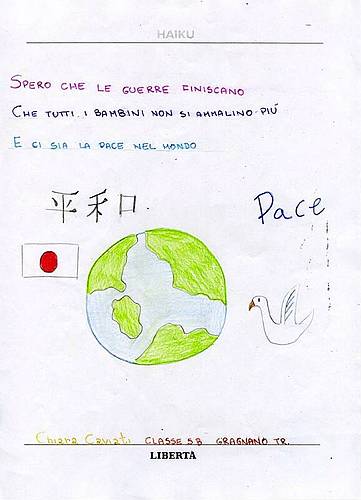 HAIKU
SPERO CHE LE GUERRE FINISCANO
CHE TUTTI I BAMBINI NON SI AMMALINO PIÚ
E CI SIA LA PACE NEL MONDO
平和口.
Pace
Chiara Caviati CLASSE 5B GRAGNANO TR.
LIBERTÀ